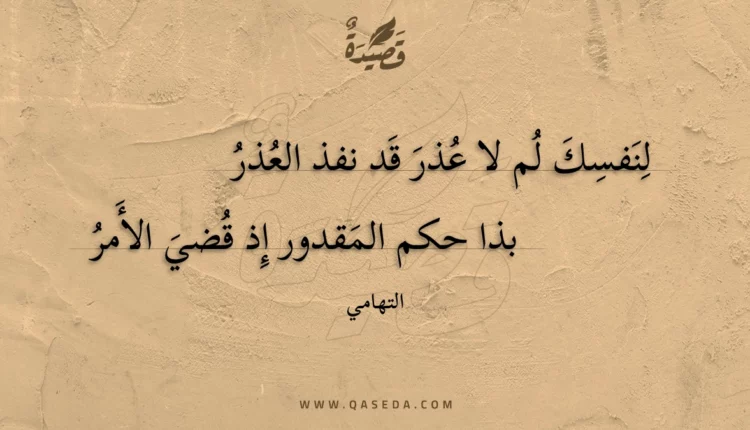 قَصِيْدَةٌ
لِنَفسِكَ لُم لا عُذرَ قَد نفذ العُذرُ
بذا حكم المَقدور إِذ قُضيَ الأَمرُ
التهامي
WWW.QASEDA.COM